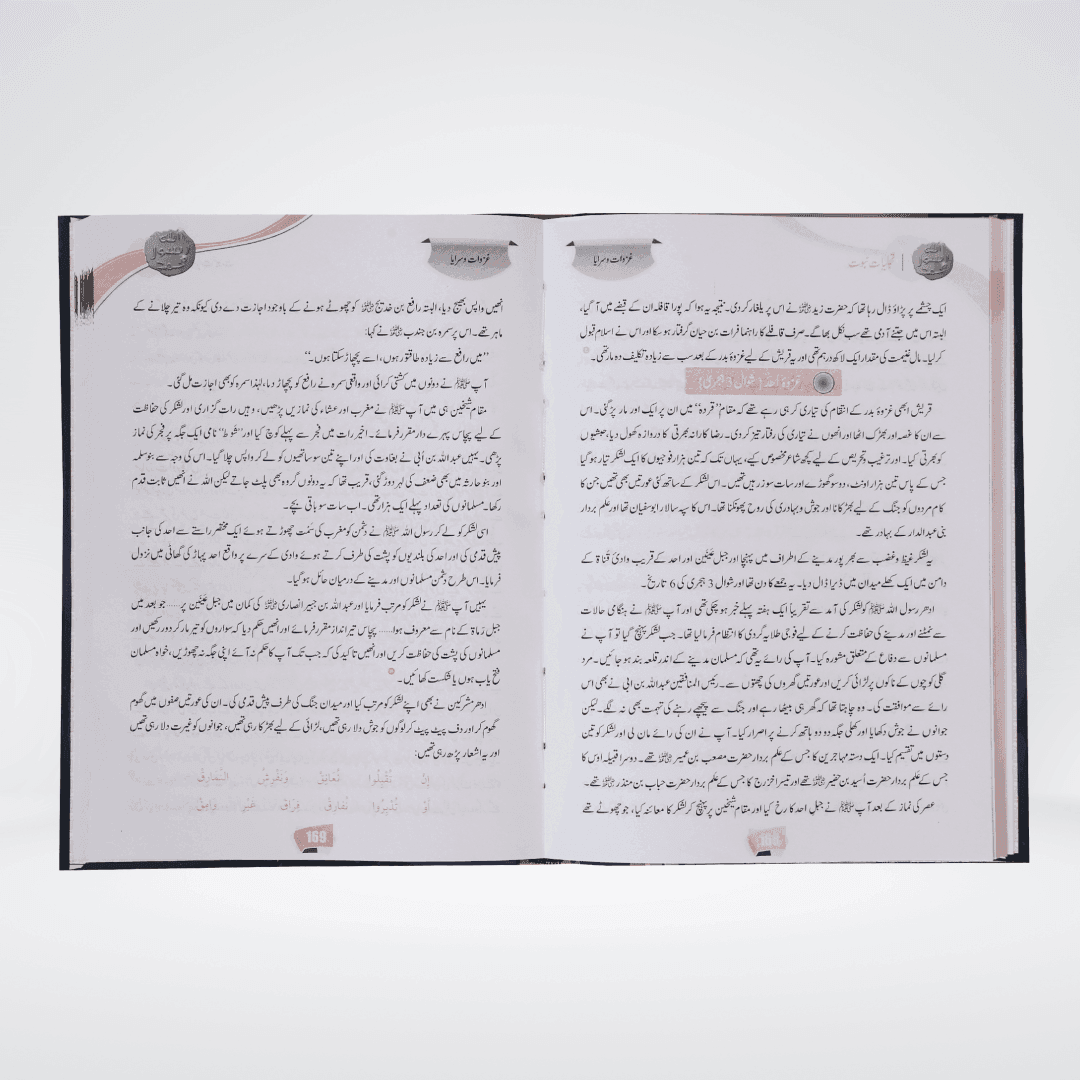 تجلیات نبوت
غزوات وسرایا
ایک چشمے پر پڑاؤ ڈال رہا تھا کہ حضرت زید رضی اللہ عنہ نے اس پر یلغار کر دی۔ نتیجہ یہ ہوا کہ پورا قافلہ ان کے قبضے میں آ گیا،
البتہ اس میں جتنے آدمی تھے سب نکل بھاگے۔ صرف قافلے کا راہنما فرات بن حیان گرفتار ہو سکا اور اس نے اسلام قبول
کر لیا۔ مال غنیمت کی مقدار ایک لاکھ درہم تھی اور یہ قریش کے لیے غزوۂ بدر کے بعد سب سے زیادہ تکلیف دہ مار تھی۔
غزوۂ احد (شوال 3 ہجری)
قریش ابھی غزوۂ بدر کے انتقام کی تیاری کر ہی رہے تھے کہ مقام ’’قردہ‘‘ میں ان پر ایک اور مار پڑ گئی۔ اس
سے ان کا غصہ اور بھڑک اٹھا اور انھوں نے تیاری کی رفتار تیز کر دی۔ رضا کارانہ بھرتی کا دروازہ کھول دیا، حبشیوں
کو بھرتی کیا۔ اور ترغیب و تحریض کے لیے کچھ شاعر مخصوص کیے، یہاں تک کہ تین ہزار فوجیوں کا ایک لشکر تیار ہو گیا
جس کے پاس تین ہزار اونٹ، دو سو گھوڑے اور سات سو زرہیں تھیں۔ اس لشکر کے ساتھ کئی عورتیں بھی تھیں جن کا
کام مردوں کو جنگ کے لیے بھڑکانا اور جوش و بہادری کی روح پھونکنا تھا۔ اس کا سپہ سالار ابوسفیان تھا اور علم بردار
بنی عبدالدار کے بہادر تھے۔
یہ لشکر غیظ و غضب سے بھر پور مدینے کے اطراف میں پہنچا اور جبل عَینَین اور احد کے قریب وادیٔ قَناۃ کے
دامن میں ایک کھلے میدان میں ڈیرا ڈال دیا۔ یہ جمعے کا دن تھا اور شوال 3 ہجری کی 6 تاریخ۔
ادھر رسول اللہ ﷺ کو لشکر کی آمد سے تقریباً ایک ہفتہ پہلے خبر ہو چکی تھی اور آپ ﷺ نے ہنگامی حالات
سے نمٹنے اور مدینے کی حفاظت کرنے کے لیے فوجی طلایہ گردی کا انتظام فرما لیا تھا۔ جب لشکر پہنچ گیا تو آپ نے
مسلمانوں سے دفاع کے متعلق مشورہ کیا۔ آپ کی رائے یہ تھی کہ مسلمان مدینے کے اندر قلعہ بند ہو جائیں۔ مرد
گلی کوچوں کے ناکوں پر لڑائی کریں اور عورتیں گھروں کی چھتوں سے۔ رئیس المنافقین عبداللہ بن ابی نے بھی اس
رائے سے موافقت کی۔ وہ چاہتا تھا کہ گھر ہی بیٹھا رہے اور جنگ سے پیچھے رہنے کی تہمت بھی نہ لگے۔ لیکن
جوانوں نے جوش دکھایا اور کھلی جگہ دو دو ہاتھ کرنے پر اصرار کیا۔ آپ نے ان کی رائے مان لی اور لشکر کو تین
دستوں میں تقسیم کیا۔ ایک دستہ مہاجرین کا جس کے علم بردار حضرت مصعب بن عمیر رضی اللہ عنہ تھے۔ دوسرا قبیلہ اوس کا
جس کے علم بردار حضرت اُسید بن حضیر رضی اللہ عنہ تھے اور تیسرا خزرج کا جس کے علم بردار حضرت حباب بن منذر رضی اللہ عنہ تھے۔
عصر کی نماز کے بعد آپ ﷺ نے جبل احد کا رخ کیا اور مقام شیخین پر پہنچ کر لشکر کا معائنہ کیا، جو چھوٹے تھے
168
غزوات وسرایا
انھیں واپس بھیج دیا، البتہ رافع بن خدیج رضی اللہ عنہ کو چھوٹے ہونے کے باوجود اجازت دے دی کیونکہ وہ تیر چلانے کے
ماہر تھے۔ اس پر سمرہ بن جندب رضی اللہ عنہ نے کہا:
’’میں رافع سے زیادہ طاقتور ہوں، اسے پچھاڑ سکتا ہوں۔‘‘
آپ ﷺ نے دونوں میں کشتی کرائی اور واقعی سمرہ نے رافع کو پچھاڑ دیا، لہٰذا سمرہ کو بھی اجازت مل گئی۔
مقام شیخین ہی میں آپ ﷺ نے مغرب اور عشاء کی نمازیں پڑھیں، وہیں رات گزاری اور لشکر کی حفاظت
کے لیے پچاس پہرے دار مقرر فرمائے۔ اخیر رات میں فجر سے پہلے کوچ کیا اور ’’شوط‘‘ نامی ایک جگہ پر فجر کی نماز
پڑھی۔ یہیں عبداللہ بن اُبی نے بغاوت کی اور اپنے تین سو ساتھیوں کو لے کر واپس چلا گیا۔ اس کی وجہ سے بنو سلمہ
اور بنو حارثہ میں بھی ضعف کی لہر دوڑ گئی، قریب تھا کہ یہ دونوں گروہ بھی پلٹ جاتے لیکن اللہ نے انھیں ثابت قدم
رکھا۔ مسلمانوں کی تعداد پہلے ایک ہزار تھی۔ اب سات سو باقی بچے۔
اسی لشکر کو لے کر رسول اللہ ﷺ نے دشمن کو مغرب کی سمت چھوڑتے ہوئے ایک مختصر راستے سے احد کی جانب
پیش قدمی کی اور احد کی بلندیوں کو پشت کی طرف کرتے ہوئے وادی کے سرے پر واقع احد پہاڑ کی گھاٹی میں نزول
فرمایا۔ اس طرح دشمن مسلمانوں اور مدینے کے درمیان حائل ہو گیا۔
یہیں آپ ﷺ نے لشکر کو مرتب فرمایا اور عبداللہ بن جبیر انصاری رضی اللہ عنہ کی کمان میں جبل عَینَین پر ..... جو بعد میں
جبل رُماۃ کے نام سے معروف ہوا ..... پچاس تیر انداز مقرر فرمائے اور انھیں حکم دیا کہ سواروں کو تیر مار کر دور رکھیں اور
مسلمانوں کی پشت کی حفاظت کریں اور انھیں تاکید کی کہ جب تک آپ کا حکم نہ آئے اپنی جگہ نہ چھوڑیں، خواہ مسلمان
فتح یاب ہوں یا شکست کھائیں۔
ادھر مشرکین نے بھی اپنے لشکر کو مرتب کیا اور میدان جنگ کی طرف پیش قدمی کی۔ ان کی عورتیں صفوں میں گھوم
گھوم کر اور دف پیٹ پیٹ کر لوگوں کو جوش دلا رہی تھیں، لڑائی کے لیے بھڑکا رہی تھیں، جوانوں کو غیرت دلا رہی تھیں
اور یہ اشعار پڑھ رہی تھیں:
إِنْ تُقْبِلُوا نُعَانِقْ وَنَفْرِشِ النَّمَارِقْ
أَوْ تُدْبِرُوا نُفَارِقْ فِرَاقَ غَيْرِ وَامِقْ
169